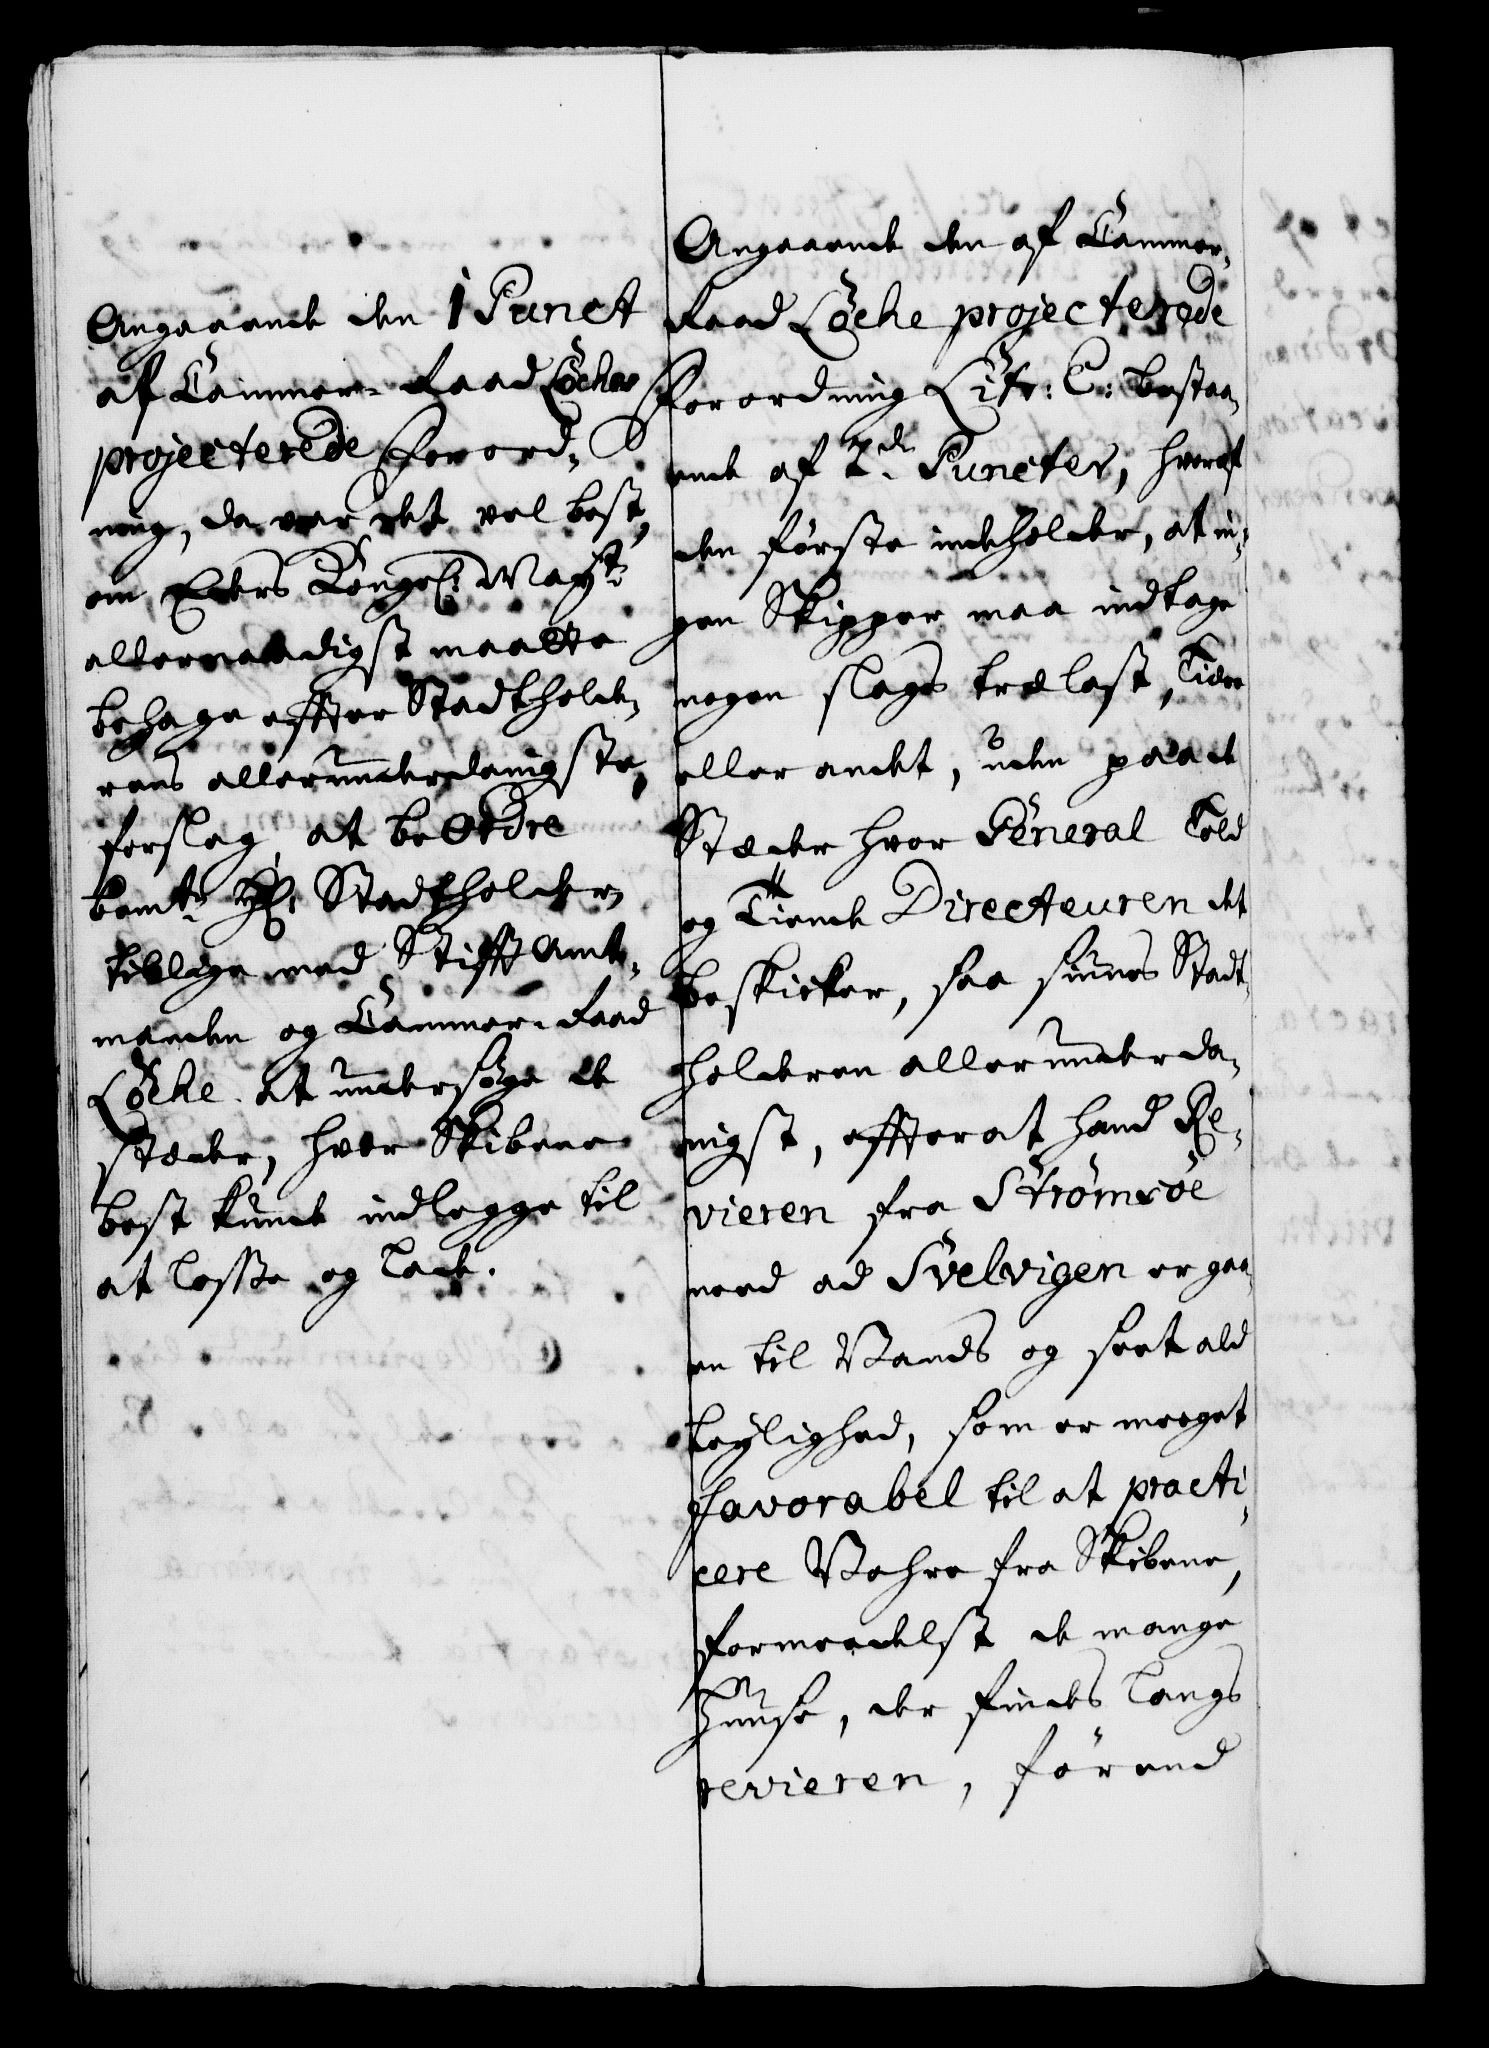 Angaaende den 1 Punct
af Cammer-Raad Löches
projecterede Forord-
ning, da var det vel best,
om Eders Kongel: Mayt:
allernaadigst maatte
behage effter Stadtholde-
rens allerunderdanigste
forslag, at beOrdre
bemte Hl: Stadtholder,
tillige med StifftAmt-
manden og Cammer-Raad
Löche at undersöge de
stæder, hvor Skibene
best kunde indlegge til
at losse og lade.
Angaaende den af Cammer-
Raad Löche projecterede
Forordning Litr: C: bestaa-
ende af 2de Puncter, hvoraf
den förste indeholder, at in-
gen Skipper maa indtage
nogen slags trælast, Tiære
eller andet, uden paa de
Stæder hvor General Told
og Tiende Directeuren det
beskicker, saa siunes Stadt-
holderen allerunderda-
nigst, effterat hand Re-
vieren fra Strömsöe
need ad Svelvigen er gaa-
en til Vands og seet ald
leylighed, som er meeget
favorabel til at practi-
cere Vahre fra Skibene,
formeedelst de mange
Huuse, der findes langs
revieren, förend